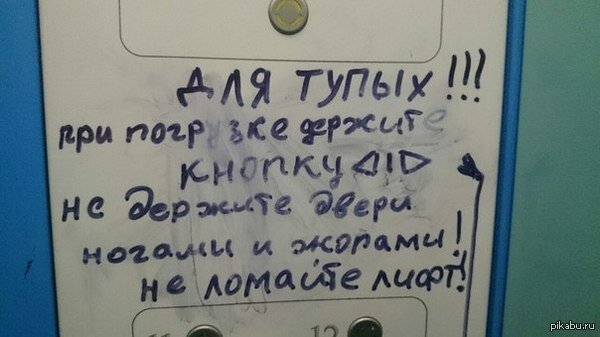 ДЛЯ ТУПЫХ!!!
при погрузке держите
КНОПКУ ◁|▷
не держите двери
ногами и жопами!
не ломайте лифт!
11 12
pikabu.ru